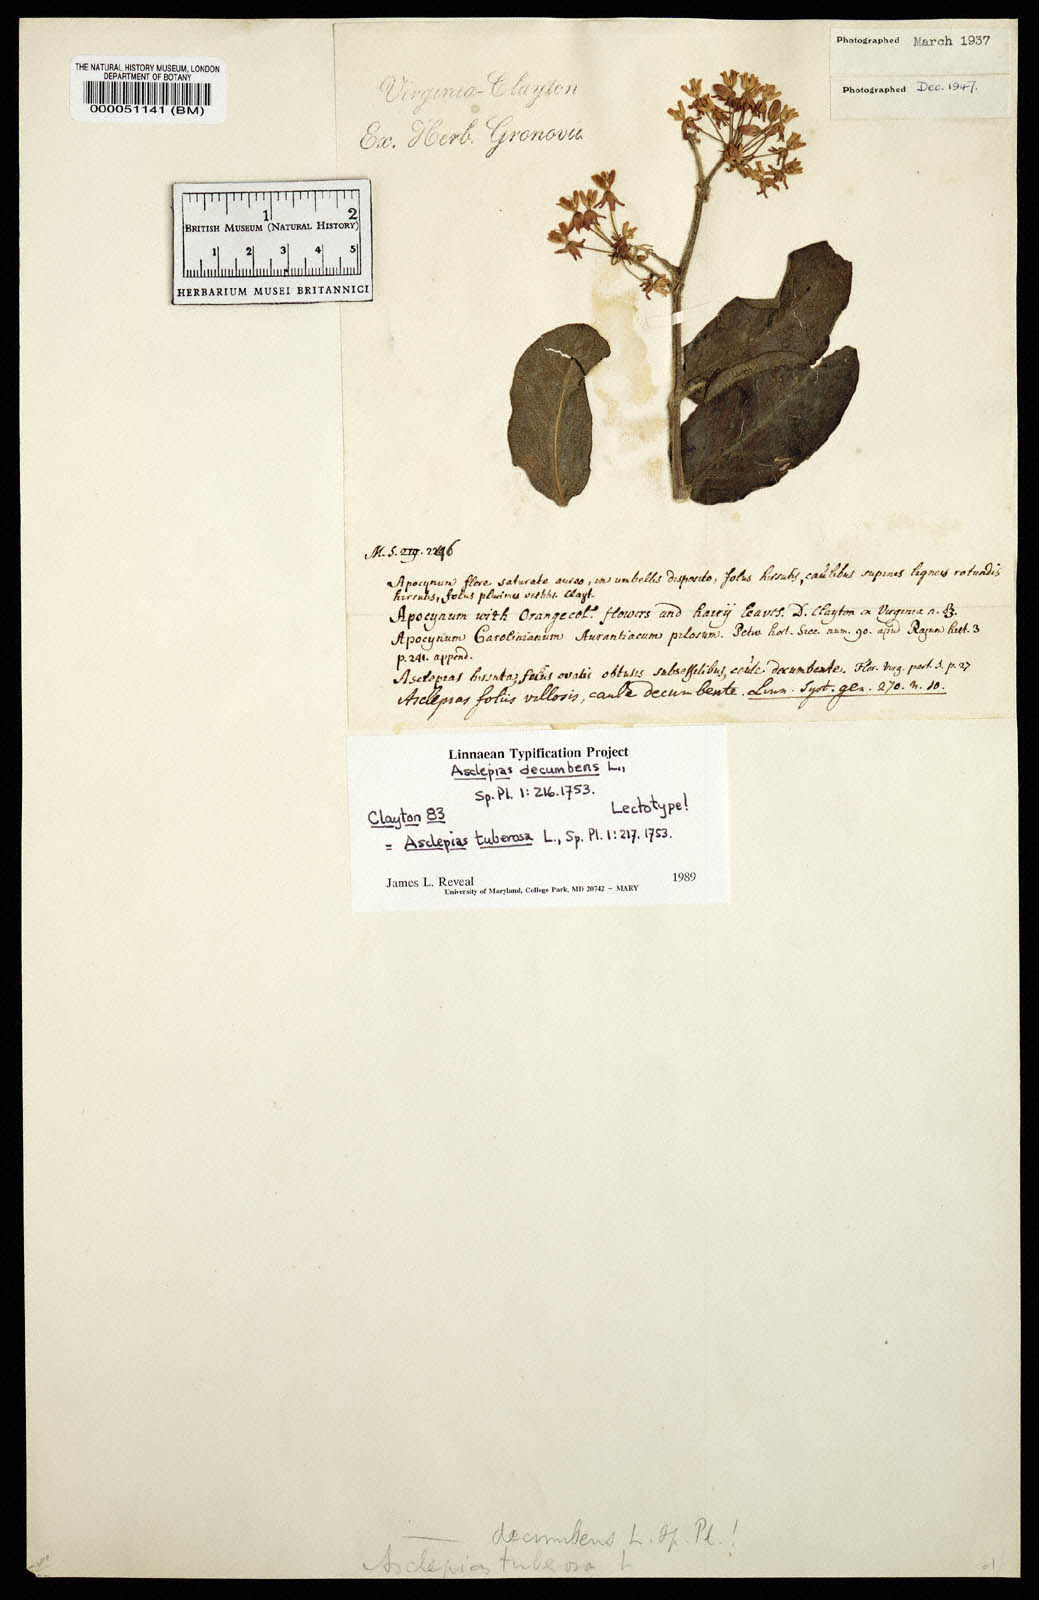 THE NATURAL HISTORY MUSEUM, LONDON
DEPARTMENT OF BOTANY
000051141 (BM)
Photographed March 1937
Photographed Dec. 1947.
Virginia-Clayton
Ex. Herb. Gronovii
1 2
BRITISH MUSEUM (NATURAL HISTORY)
1 2 3 4 5
HERBARIUM MUSEI BRITANNICI
M. S.
Apocynum flore saturate aureo, in umbellis disposito, foliis hirsutis, caulibus supinis ligneis rotundis
hirsutis, foliis plurimis vestitis. Clayt.
Apocynum with Orange col.d flowers and hairy leaves. D. Clayton ex Virginia n. 83.
Apocynum Carolinianum Aurantiacum pilosum. Petiv. hort. Sicc. num. 90. apud Rajum hist. 3
p. 241. append.
Asclepias hirsuta, foliis ovatis obtusis subsessilibus, caule decumbente. Flor. Virg. part. 1. p. 27
Asclepias foliis villosis, caule decumbente. Linn. Syst. gen. 270. n. 10.
Linnaean Typification Project
Asclepias decumbens L.,
Sp. Pl. 1: 216. 1753.
Clayton 83 Lectotype!
= Asclepias tuberosa L., Sp. Pl. 1: 217. 1753.
James L. Reveal 1989
University of Maryland, College Park, MD 20742 – MARY
— decumbens L. Sp. Pl.!
Asclepias tuberosa L